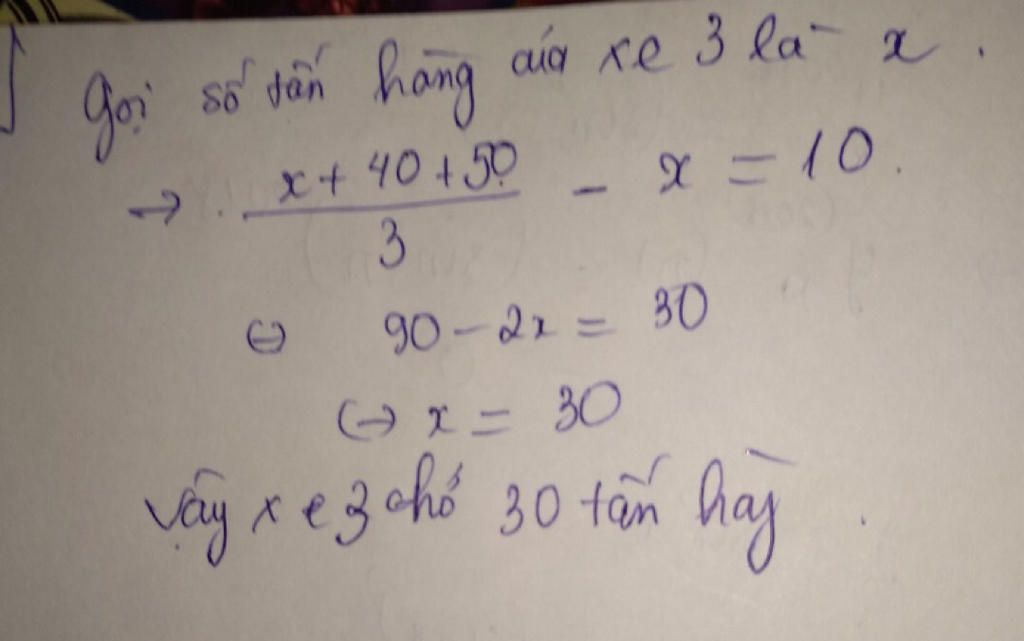 Gọi số tấn hàng của xe 3 là x.
→ (x + 40 + 50)/3 - x = 10.
⇔ 90 - 2x = 30
⇔ x = 30
Vậy xe 3 chở 30 tấn hàg.